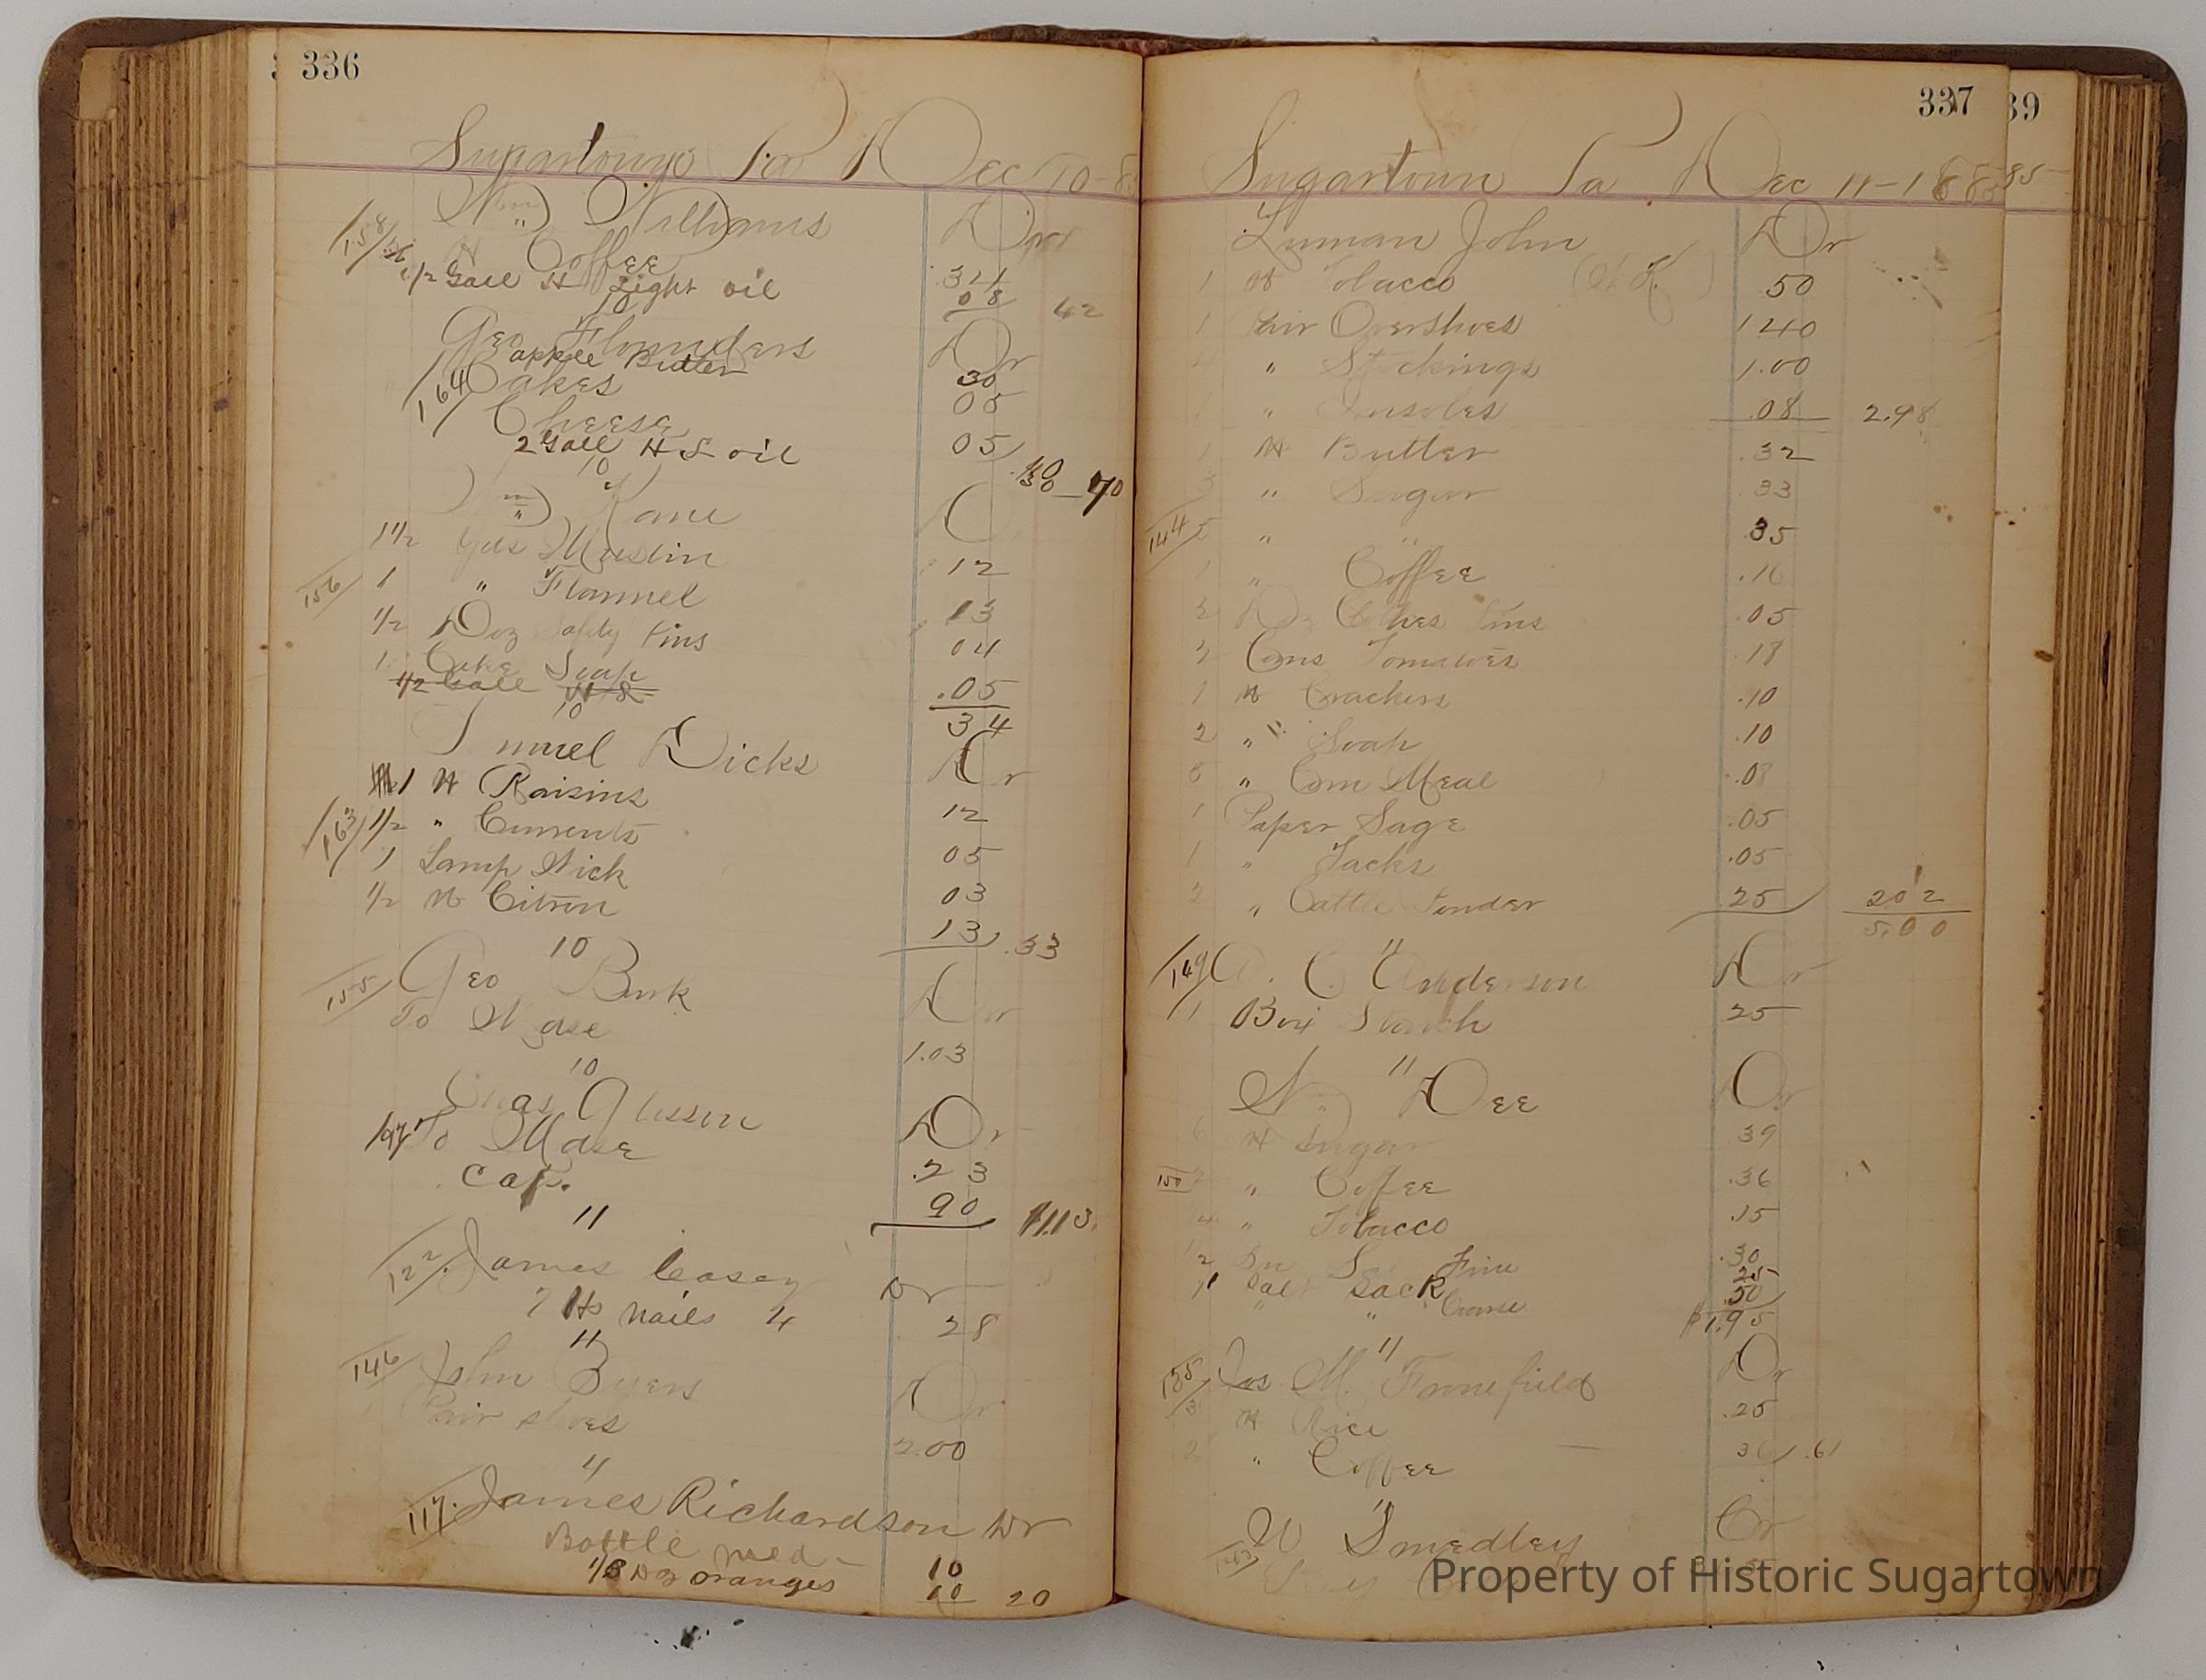 336
Sugartown Pa Dec 10-8
Wm Williams Dr
158
Coffee
1/2 Gall H Light oil 34
08 42
10
Geo Flounders Dr
Apple Butter
164 Cakes 30
05
Cheese
2 Gall H L oil 05
40 70
10
Wm Kane
1 1/2 yds Muslin
12
156 1 " Flannel
13
1/2 Doz Safety Pins
04
1 Cake Soap
1/2 Gall .05
10 34
Dicks Dr
1 # Raisins
12
163 1/2 " Currents
05
1 Lamp Wick
03
1/2 # Citron
13 .33
10
155 Geo Burk Dr
To Mdse
1.03
10
Chas Glisson Dr
147 To Mdse
.23
Cap.
90 1.13
11
122 James Casey Dr
7 #s nails 4 28
11
146 John Byers Dr
Pair shoes
2.00
11
117. James Richardson Dr
Bottle med
10
1/3 Doz oranges 10 20
337 39
Sugartown Pa Dec 11-1885 85
Luman John Dr
1 # Tobacco 50
1 Pair Overshoes 1 40
" Stockings 1.00
1 " Insoles .08 2.98
1 # Butter .32
" Sugar .33
144 5 " " .35
1 " Coffee .16
2 Doz Clothes Pins .05
2 Cans Tomatoes .18
1 # Crackers .10
2 " Soap .10
5 " Corn Meal .08
1 Paper Sage .05
1 " Tacks .05
2 " Cattle Powder 25 202
5.00
11
149 A. C. Anderson Dr
1 Box Starch 25
11
Dee Dr
6 # Sugar 39
150 2 " Coffee .36
" Tobacco .15
Fine .30
Salt Sack 25
" " Coarse .50
$1.95
11
155 Jos M. Fannefield Dr
3 # Rice .25
2 " Coffee 36 .61
11
W Smedley Cr
163
Property of Historic Sugartown